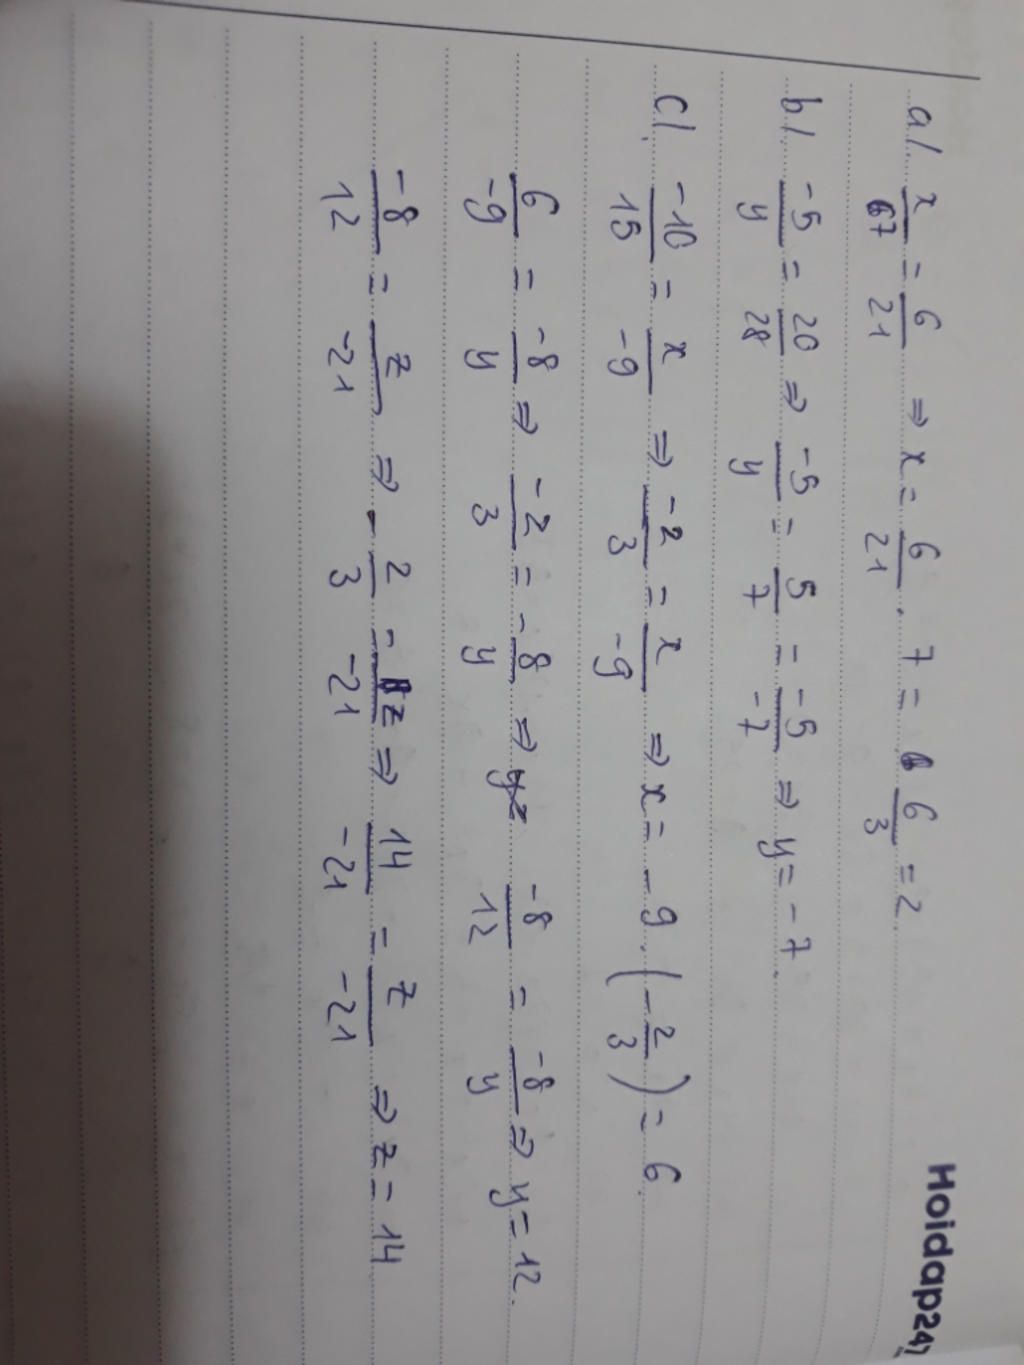 Hoidap247
a/. x/7 = 6/21 ⇒ x = 6/21 . 7 = 6/3 = 2
b/. -5/y = 20/28 ⇒ -5/y = 5/7 = -5/-7 ⇒ y = -7.
c/. -10/15 = x/-9 ⇒ -2/3 = x/-9 ⇒ x = -9.(-2/3) = 6.
6/-9 = -8/y ⇒ -2/3 = -8/y ⇒ -8/12 = -8/y ⇒ y = 12.
-8/12 = z/-21 ⇒ -2/3 = z/-21 ⇒ 14/-21 = z/-21 ⇒ z = 14